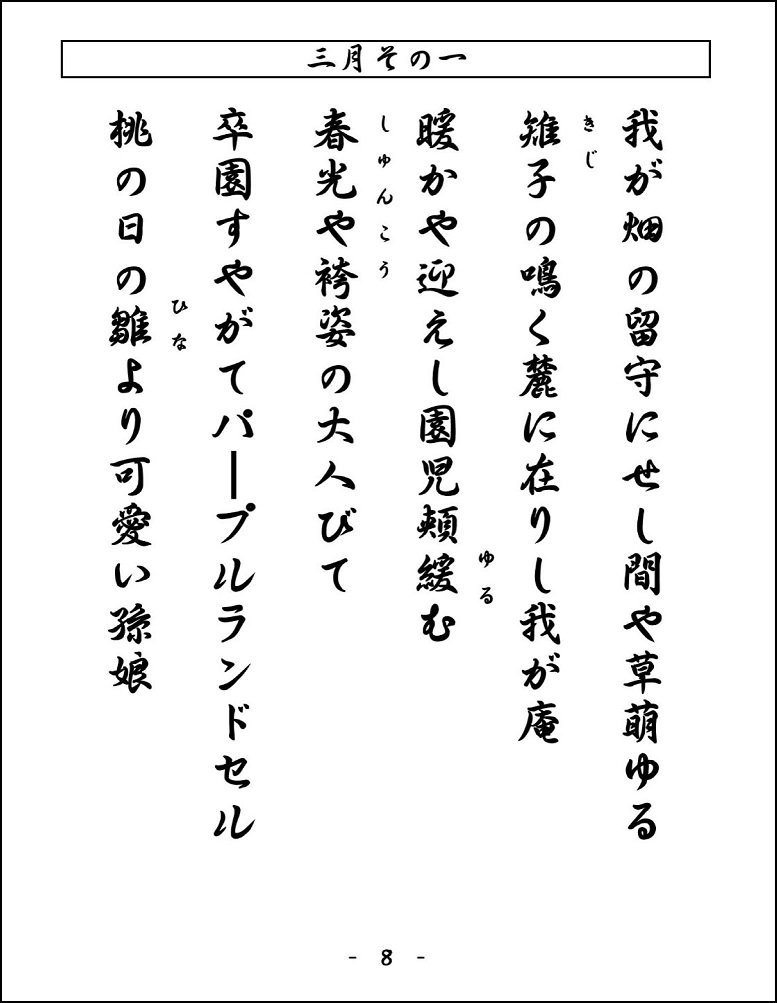 三月その一
我が畑の留守にせし間や草萌ゆる
きじ
雉子の鳴く麓に在りし我が庵
暖かや迎えし園児頬緩む
ゆる
しゅんこう
春光や袴姿の大人びて
卒園すやがてパープルランドセル
ひな
桃の日の雛より可愛い孫娘
- 8 -